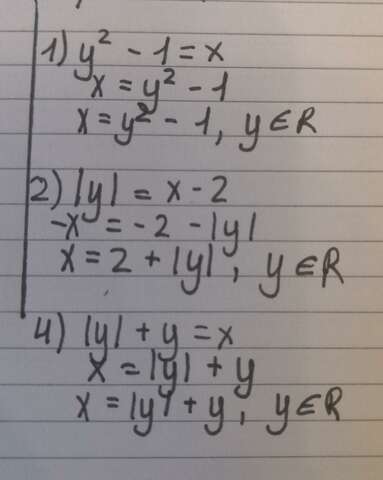 1) y² - 1 = x
x = y² - 1
x = y² - 1, y ∈ R
2) |y| = x - 2
-x = -2 - |y|
x = 2 + |y|, y ∈ R
4) |y| + y = x
x = |y| + y
x = |y| + y, y ∈ R